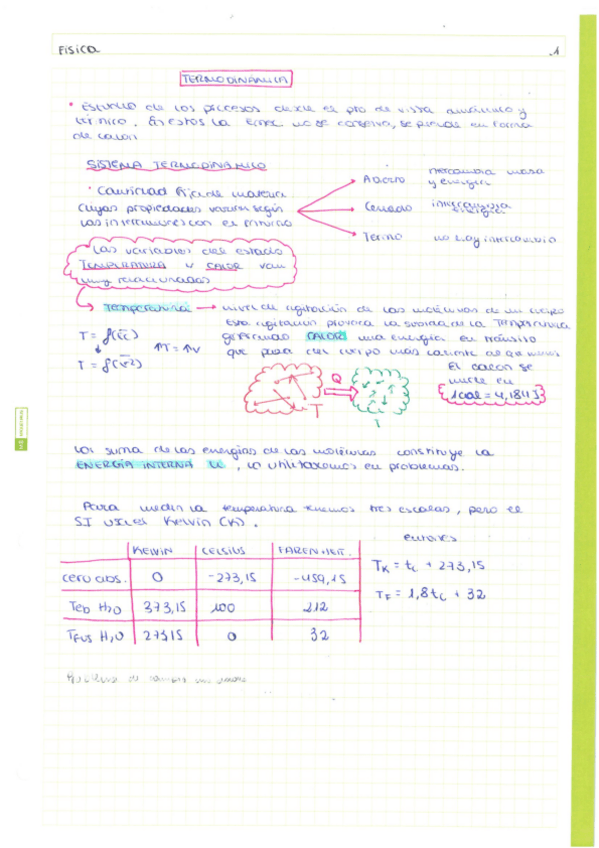 Física
1
TERMODINÁMICA
• Estudio de los procesos desde el pto de vista dinámico y
térmico. En estos la Emec no se conserva, se pierde en forma
de calor
SISTEMA TERMODINÁMICO
• Cantidad fija de materia
cuyas propiedades varían según
las interacciones con el entorno
Abierto intercambia masa
y energía
Cerrado intercambia
energía
Térmo no hay intercambio
Las variables del estado
TEMPERATURA y CALOR van
muy relacionadas
Temperatura → nivel de agitación de las moléculas de un cuerpo
Esta agitación provoca la subida de la Temperatura
generando CALOR una energía en tránsito
que pasa del cuerpo más caliente al de menos
T = f(Ec)
↑T = ↑v
T = f(v2)
Q
T
T
El calor se
mide en
1 cal = 4,184 J
La suma de las energías de las moléculas constituye la
ENERGÍA INTERNA U, lo utilizaremos en problemas.
Para medir la temperatura tenemos tres escalas, pero el
SI usa el Kelvin (K).
KELVIN CELSIUS FARENHEIT.
cero abs. 0 -273,15 -459,15
Teb H2O 373,15 100 212
Tfus H2O 273,15 0 32
entonces
TK = tc + 273,15
TF = 1,8tc + 32